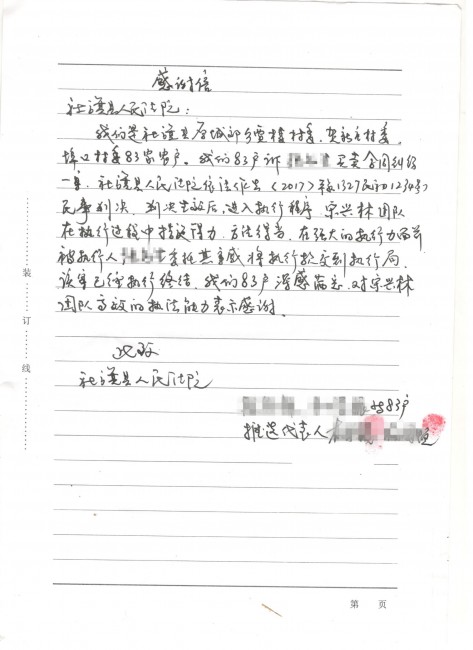 感谢信
社旗县人民法院:
我们是社旗县唐庄乡 村委、 村委、
村委83家农户。我们83户诉 买卖合同纠纷
一案,社旗县人民法院依法作出(2017)豫1327民初1234号
民事判决。判决生效后,进入执行程序,宋兴林团队
在执行过程中措施得力、方法得当,在强大的执行力面前
被执行人 委托其亲戚将执行款交到执行局,
该案已经执行终结,我们83户深感满意,对宋兴林
团队高效的执法能力表示感谢。
此致
社旗县人民法院
等83户
推选代表人
装订线
第 页